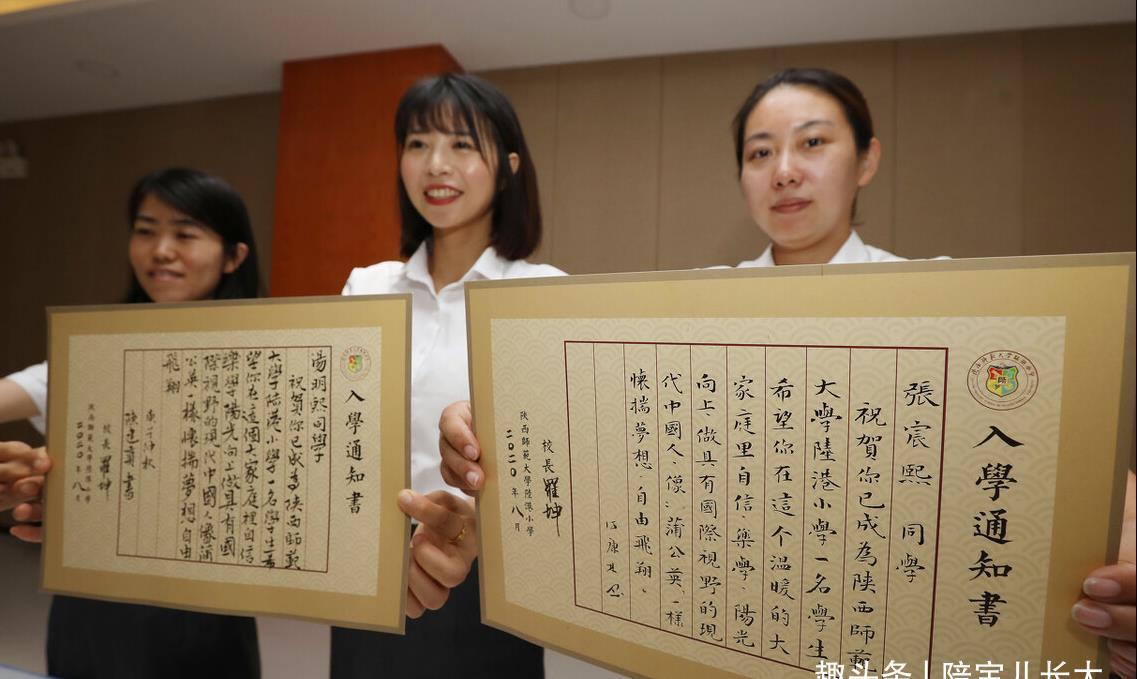 入學通知書
張宸熙 同學
祝賀你已成為陝西師範
大學陸港小學一名學生
希望你在這个溫暖的大
家庭里自信、樂學、陽光
向上、做具有國際視野的現
代中國人、像蒲公英一樣
懷揣夢想、自由飛翔、
校長 羅坤
陝西師範大學陸港小學
二〇二〇年八月
入學通知書
湯明熙同學
祝賀你已成为陝西師範
大學陸港小學一名學生希
望你在這個大家庭裡自信
樂學陽光向上做具有國
際視野的現代中國人像蒲
公英一樣懷揣夢想自由
飛翔
陳建喜書
校長 羅坤
陝西師範大學陸港小學
二〇二〇年八月
趣头条 | 陪宝儿长大